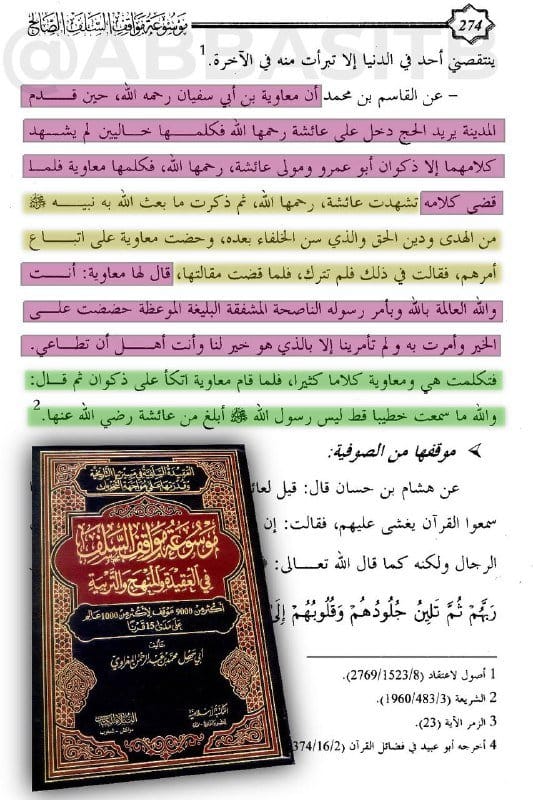 موسوعة مواقف السلف الصالح
274
@ABBASITB
ينتقصني أحد في الدنيا إلا تبرأت منه في الآخرة.1
– عن القاسم بن محمد أن معاوية بن أبي سفيان رحمه الله، حين قدم
المدينة يريد الحج دخل على عائشة رحمها الله فكلمها خاليين لم يشهد
كلامهما إلا ذكوان أبو عمرو ومولى عائشة، رحمها الله، فكلمها معاوية فلما
قضى كلامه تشهدت عائشة، رحمها الله، ثم ذكرت ما بعث الله به نبيه ﷺ
من الهدى ودين الحق والذي سن الخلفاء بعده، وحضت معاوية على اتباع
أمرهم، فقالت في ذلك فلم تترك، فلما قضت مقالتها، قال لها معاوية: أنت
والله العالمة بالله وبأمر رسوله الناصحة المشفقة البليغة الموعظة حضضت على
الخير وأمرت به ولم تأمرينا إلا بالذي هو خير لنا وأنت أهل أن تطاعي.
فتكلمت هي ومعاوية كلاما كثيرا، فلما قام معاوية اتكأ على ذكوان ثم قال:
والله ما سمعت خطيبا قط ليس رسول الله ﷺ أبلغ من عائشة رضي الله عنها.2
موقفها من الصوفية:
عن هشام بن حسان قال: قيل لعائ
سمعوا القرآن يغشى عليهم، فقالت: إن
الرجال ولكنه كما قال الله تعالى:
رَبَّهُمْ ثُمَّ تَلِينُ جُلُودُهُمْ وَقُلُوبُهُمْ إِلَىٰ
1 أصول لاعتقاد (2769/1523/8).
2 الشريعة (1960/483/3).
3 الزمر الآية (23).
4 أخرجه أبو عبيد في فضائل القرآن (374/16/2
العقيدة السلفية في مسيرتها التاريخية
وقدرتها على مواجهة التحديات
موسوعة مواقف السلف
في العقيدة والمنهج والتربية
أكثر من 9000 موقف لأكثر من 1000 عالم
على مدى 15 قرنا
تأليف
أبي سهل محمد بن عبد الرحمن المغراوي
المكتبة الإسلامية